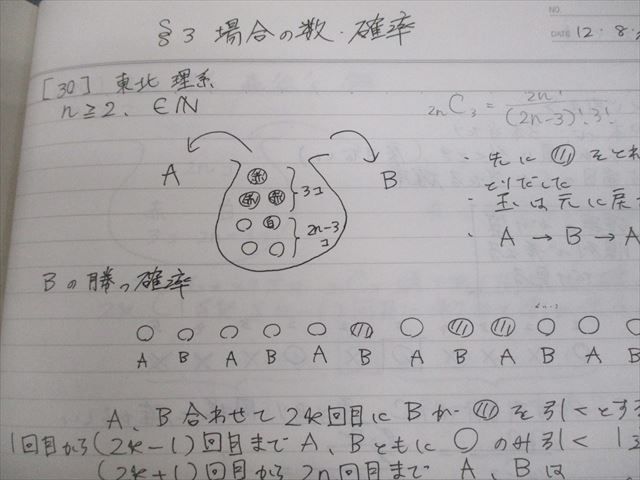 NO.
DATE 12・8・
§3 場合の数・確率
[30] 東北 理系
n≧2, ∈ℕ
2nC3 = 2n! / (2n-3)!3!
A
B
赤
赤 赤
白
3コ
2n-3コ
・先に
をとれ
とりだした
・玉は元に戻
・A→B→A
Bの勝つ確率
A B A B A B A B A B A B
A、B合わせて2k回目にBが
を引くとす
1回目から(2k-1)回目までA、Bともに○のみ引く
(2k+1)回目から2n回目までA、Bは